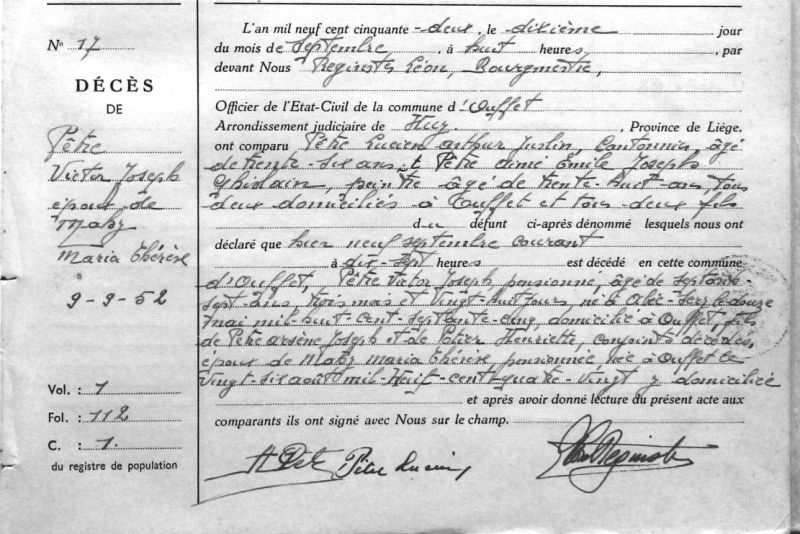 N° 17
DÉCÈS
DE
Pêtre
Victor Joseph
époux de
Mahy
Maria Thérèse
9-9-52
Vol. : 1
Fol. : 112
C. : 1.
du registre de population
L'an mil neuf cent cinquante-deux, le dixième jour
du mois de septembre, à huit heures, par
devant Nous Reginster Léon, Bourgmestre,
Officier de l'Etat-Civil de la commune d'Ouffet
Arrondissement judiciaire de Huy, Province de Liège,
ont comparu Pêtre Lucien Arthur Justin, Cantonnier, âgé
de trente-six ans, et Pêtre Aimé Emile Joseph
Ghislain, peintre âgé de trente-huit ans, tous
deux domiciliés à Ouffet et tous deux fils
du défunt ci-après dénommé lesquels nous ont
déclaré que hier neuf septembre courant
à dix-sept heures est décédé en cette commune
d'Ouffet, Pêtre Victor Joseph, pensionné, âgé de septante-
sept ans, trois mois et vingt-huit jours, né à le douze
mai mil-huit-cent-septante-cinq, domicilié à Ouffet, fils
de Pêtre Arsène Joseph et de Henriette, conjoints décédés,
époux de Mahy Maria Thérèse pensionnée née à Ouffet le
vingt-six août mil-huit-cent quatre-vingt y domiciliée
et après avoir donné lecture du présent acte aux
comparants ils ont signé avec Nous sur le champ.
A Petre Pêtre Lucien Reginster